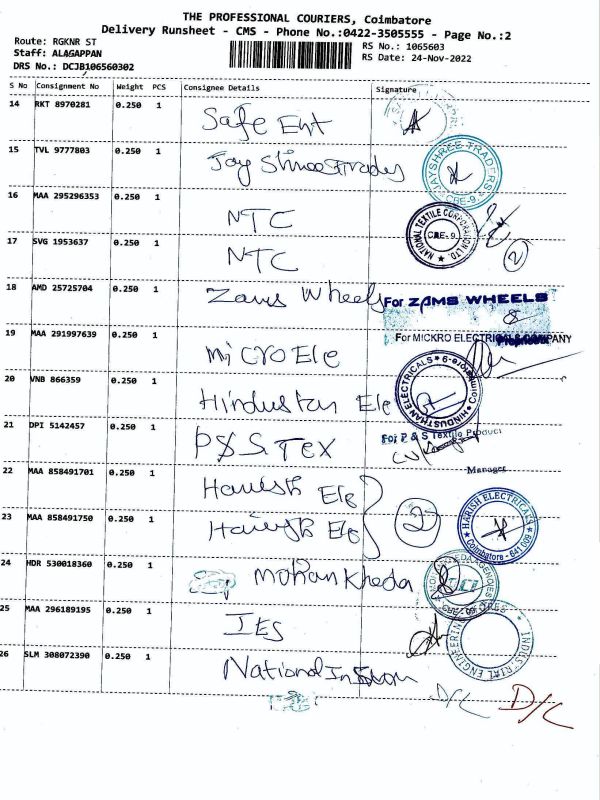 THE PROFESSIONAL COURIERS, Coimbatore
Delivery Runsheet - CMS - Phone No.:0422-3505555 - Page No.:2
Route: RGKNR ST
RS No.: 1065603
Staff: ALAGAPPAN
RS Date: 24-Nov-2022
DRS No.: DCJB106560302
S No Consignment No Weight PCS Consignee Details Signature
14 RKT 8970281 0.250 1 Safe Ent
15 TVL 9777803 0.250 1 Jay Shree Trades
JAYSHREE TRADERS CBE-9
16 MAA 295296353 0.250 1 NTC
NATIONAL TEXTILE CORPORATION LTD. CBE-9
17 SVG 1953637 0.250 1 NTC
2
18 AMD 25725704 0.250 1 Zams Wheels
For ZAMS WHEELS
19 MAA 291997639 0.250 1 Micro Ele
For MICKRO ELECTRICAL COMPANY
20 VNB 866359 0.250 1 Hindustan Ele
HINDUSTHAN ELECTRICALS Coimbatore-9
21 DPI 5142457 0.250 1 P&S. Tex
For P & S Textile Product
Manager
22 MAA 858491701 0.250 1 Harish Ele
23 MAA 858491750 0.250 1 Harish Ele
2
HARISH ELECTRICALS Coimbatore - 641 009
24 HDR 530018360 0.250 1 Mohan Kheda
25 MAA 296189195 0.250 1 IES
INDUSTRIAL ENGINEERING STORES
26 SLM 308072390 0.250 1 National
D/C D/C